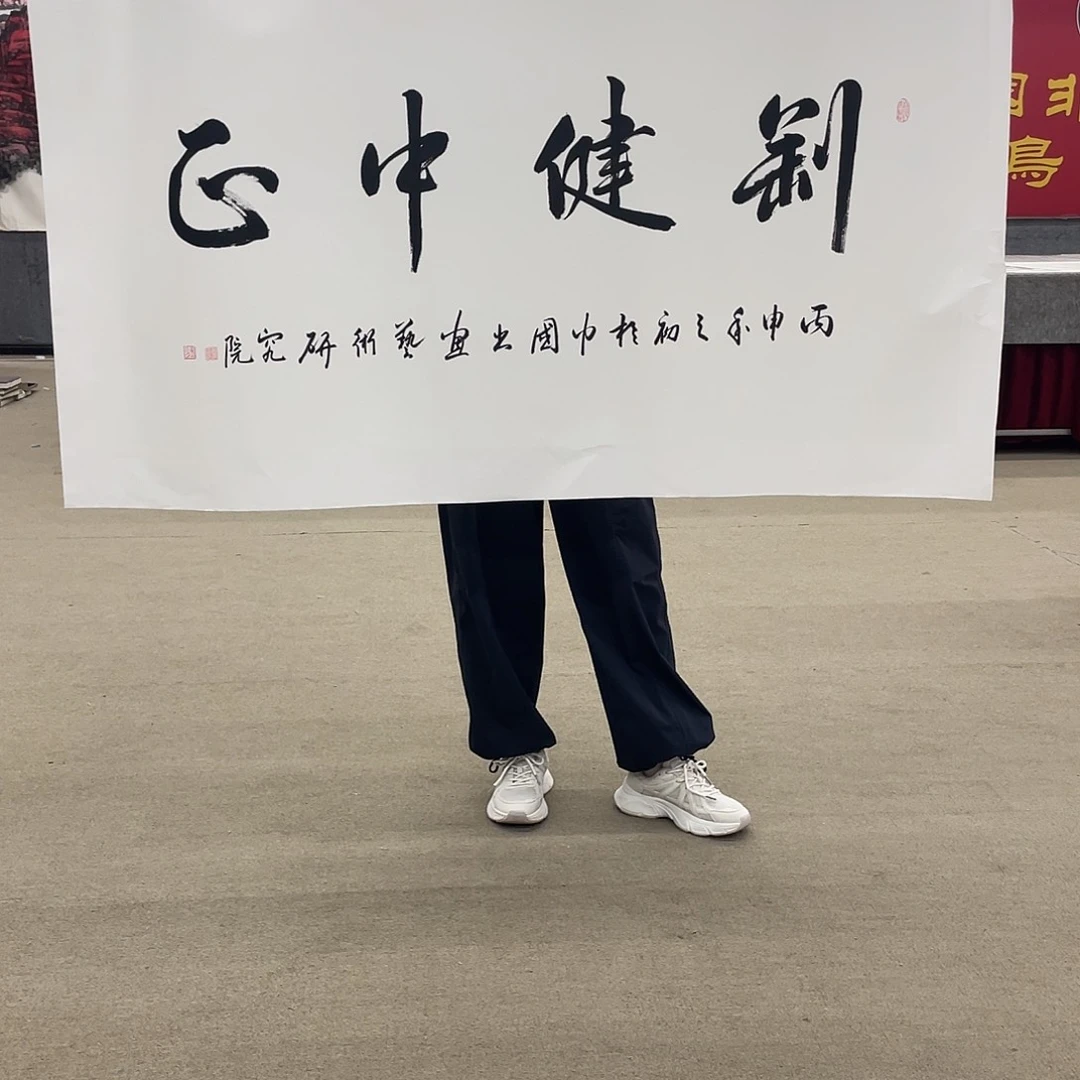 剛健中正
丙申年之初於中國书畫藝術研究院